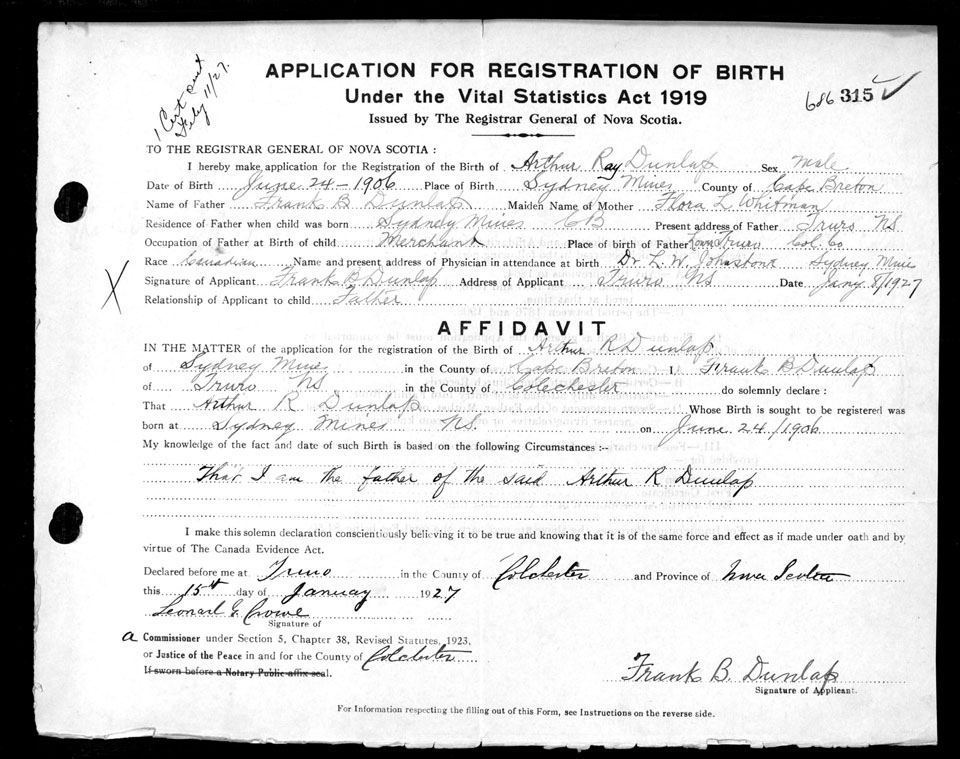 1 Cert sent
Feby 11/27.
APPLICATION FOR REGISTRATION OF BIRTH
Under the Vital Statistics Act 1919
Issued by The Registrar General of Nova Scotia.
686 315
TO THE REGISTRAR GENERAL OF NOVA SCOTIA:
I hereby make application for the Registration of the Birth of Arthur Ray Dunlap Sex Male
Date of Birth June 24 - 1906 Place of Birth Sydney Mines County of Cape Breton
Name of Father Frank B Dunlap Maiden Name of Mother Flora L Whitman
Residence of Father when child was born Sydney Mines CB Present address of Father Truro NS
Occupation of Father at Birth of child Merchant Place of birth of Father Truro Col. Co
Race Canadian Name and present address of Physician in attendance at birth Dr L. W. Johnstone Sydney Mines
Signature of Applicant Frank B Dunlap Address of Applicant Truro NS Date Jany 8/1927
Relationship of Applicant to child Father
X
AFFIDAVIT
IN THE MATTER of the application for the registration of the Birth of Arthur R Dunlap
of Sydney Mines in the County of Cape Breton I, Frank B Dunlap
of Truro NS in the County of Colchester do solemnly declare:
That Arthur R Dunlap Whose Birth is sought to be registered was
born at Sydney Mines NS. on June 24/1906
My knowledge of the fact and date of such Birth is based on the following Circumstances:-
That I am the father of the said Arthur R Dunlap
I make this solemn declaration conscientiously believing it to be true and knowing that it is of the same force and effect as if made under oath and by
virtue of The Canada Evidence Act.
Declared before me at Truro in the County of Colchester and Province of Nova Scotia
this 15th day of January 1927
Leonard G Crowe
Signature of
a Commissioner under Section 5, Chapter 38, Revised Statutes, 1923,
or Justice of the Peace in and for the County of Colchester
If sworn before a Notary Public affix seal.
Frank B. Dunlap
Signature of Applicant.
For Information respecting the filling out of this Form, see Instructions on the reverse side.